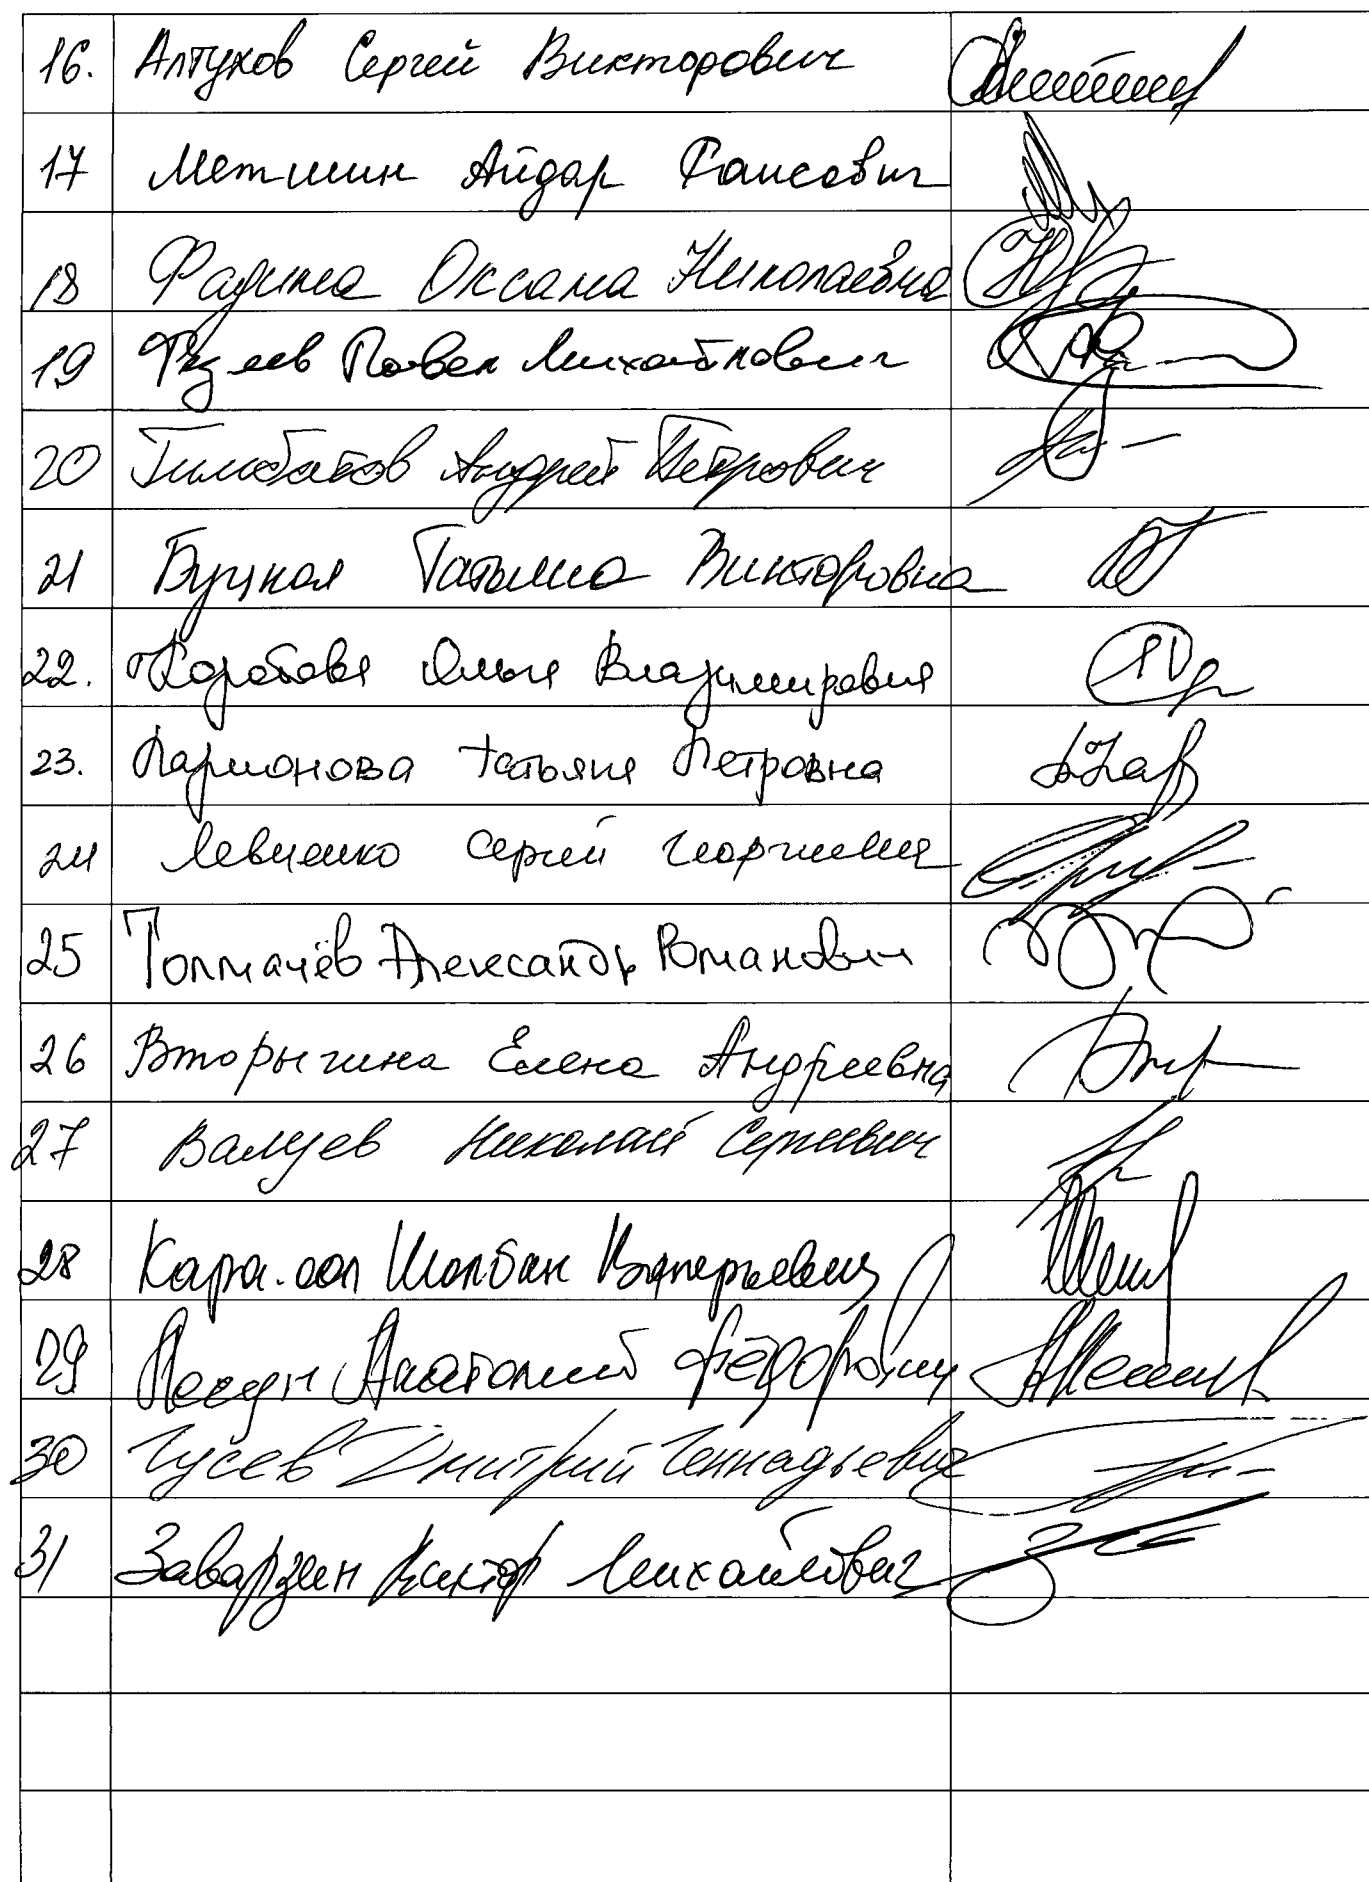 16. Алтухов Сергей Викторович
17 Метшин Айдар Раисович
18 Фадина Оксана Николаевна
19 Павел Михайлович
20 Гилюбатов Андрей Петрович
21 Буцкая Татьяна Викторовна
22. Коробова Ольга Владимировна
23. Ларионова Татьяна Петровна
24 Левченко Сергей Георгиевич
25 Толмачёв Александр Романович
26 Вторыгина Елена Андреевна
27 Валуев Николай Сергеевич
28 Кара-оол Шолбан Валерьевич
29 Лесун Анатолий Фёдорович
30 Гусев Дмитрий Геннадьевич
31 Заварзин Виктор Михайлович